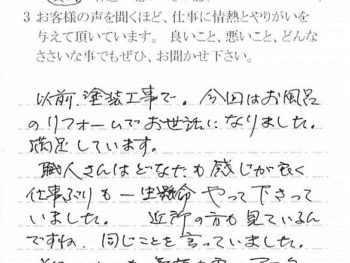 3 お客様の声を聞くほど、仕事に情熱とやりがいを
与えて頂いています。良いこと、悪いこと、どんな
ささいな事でもぜひ、お聞かせ下さい。
以前、塗装工事で。今回はお風呂
のリフォームでお世話になりました。
満足しています。
職人さんはどなたも感じが良く
仕事ぶりも一生懸命やって下さって
いました。 近所の方も見ているん
ですね、同じことを言っていました。